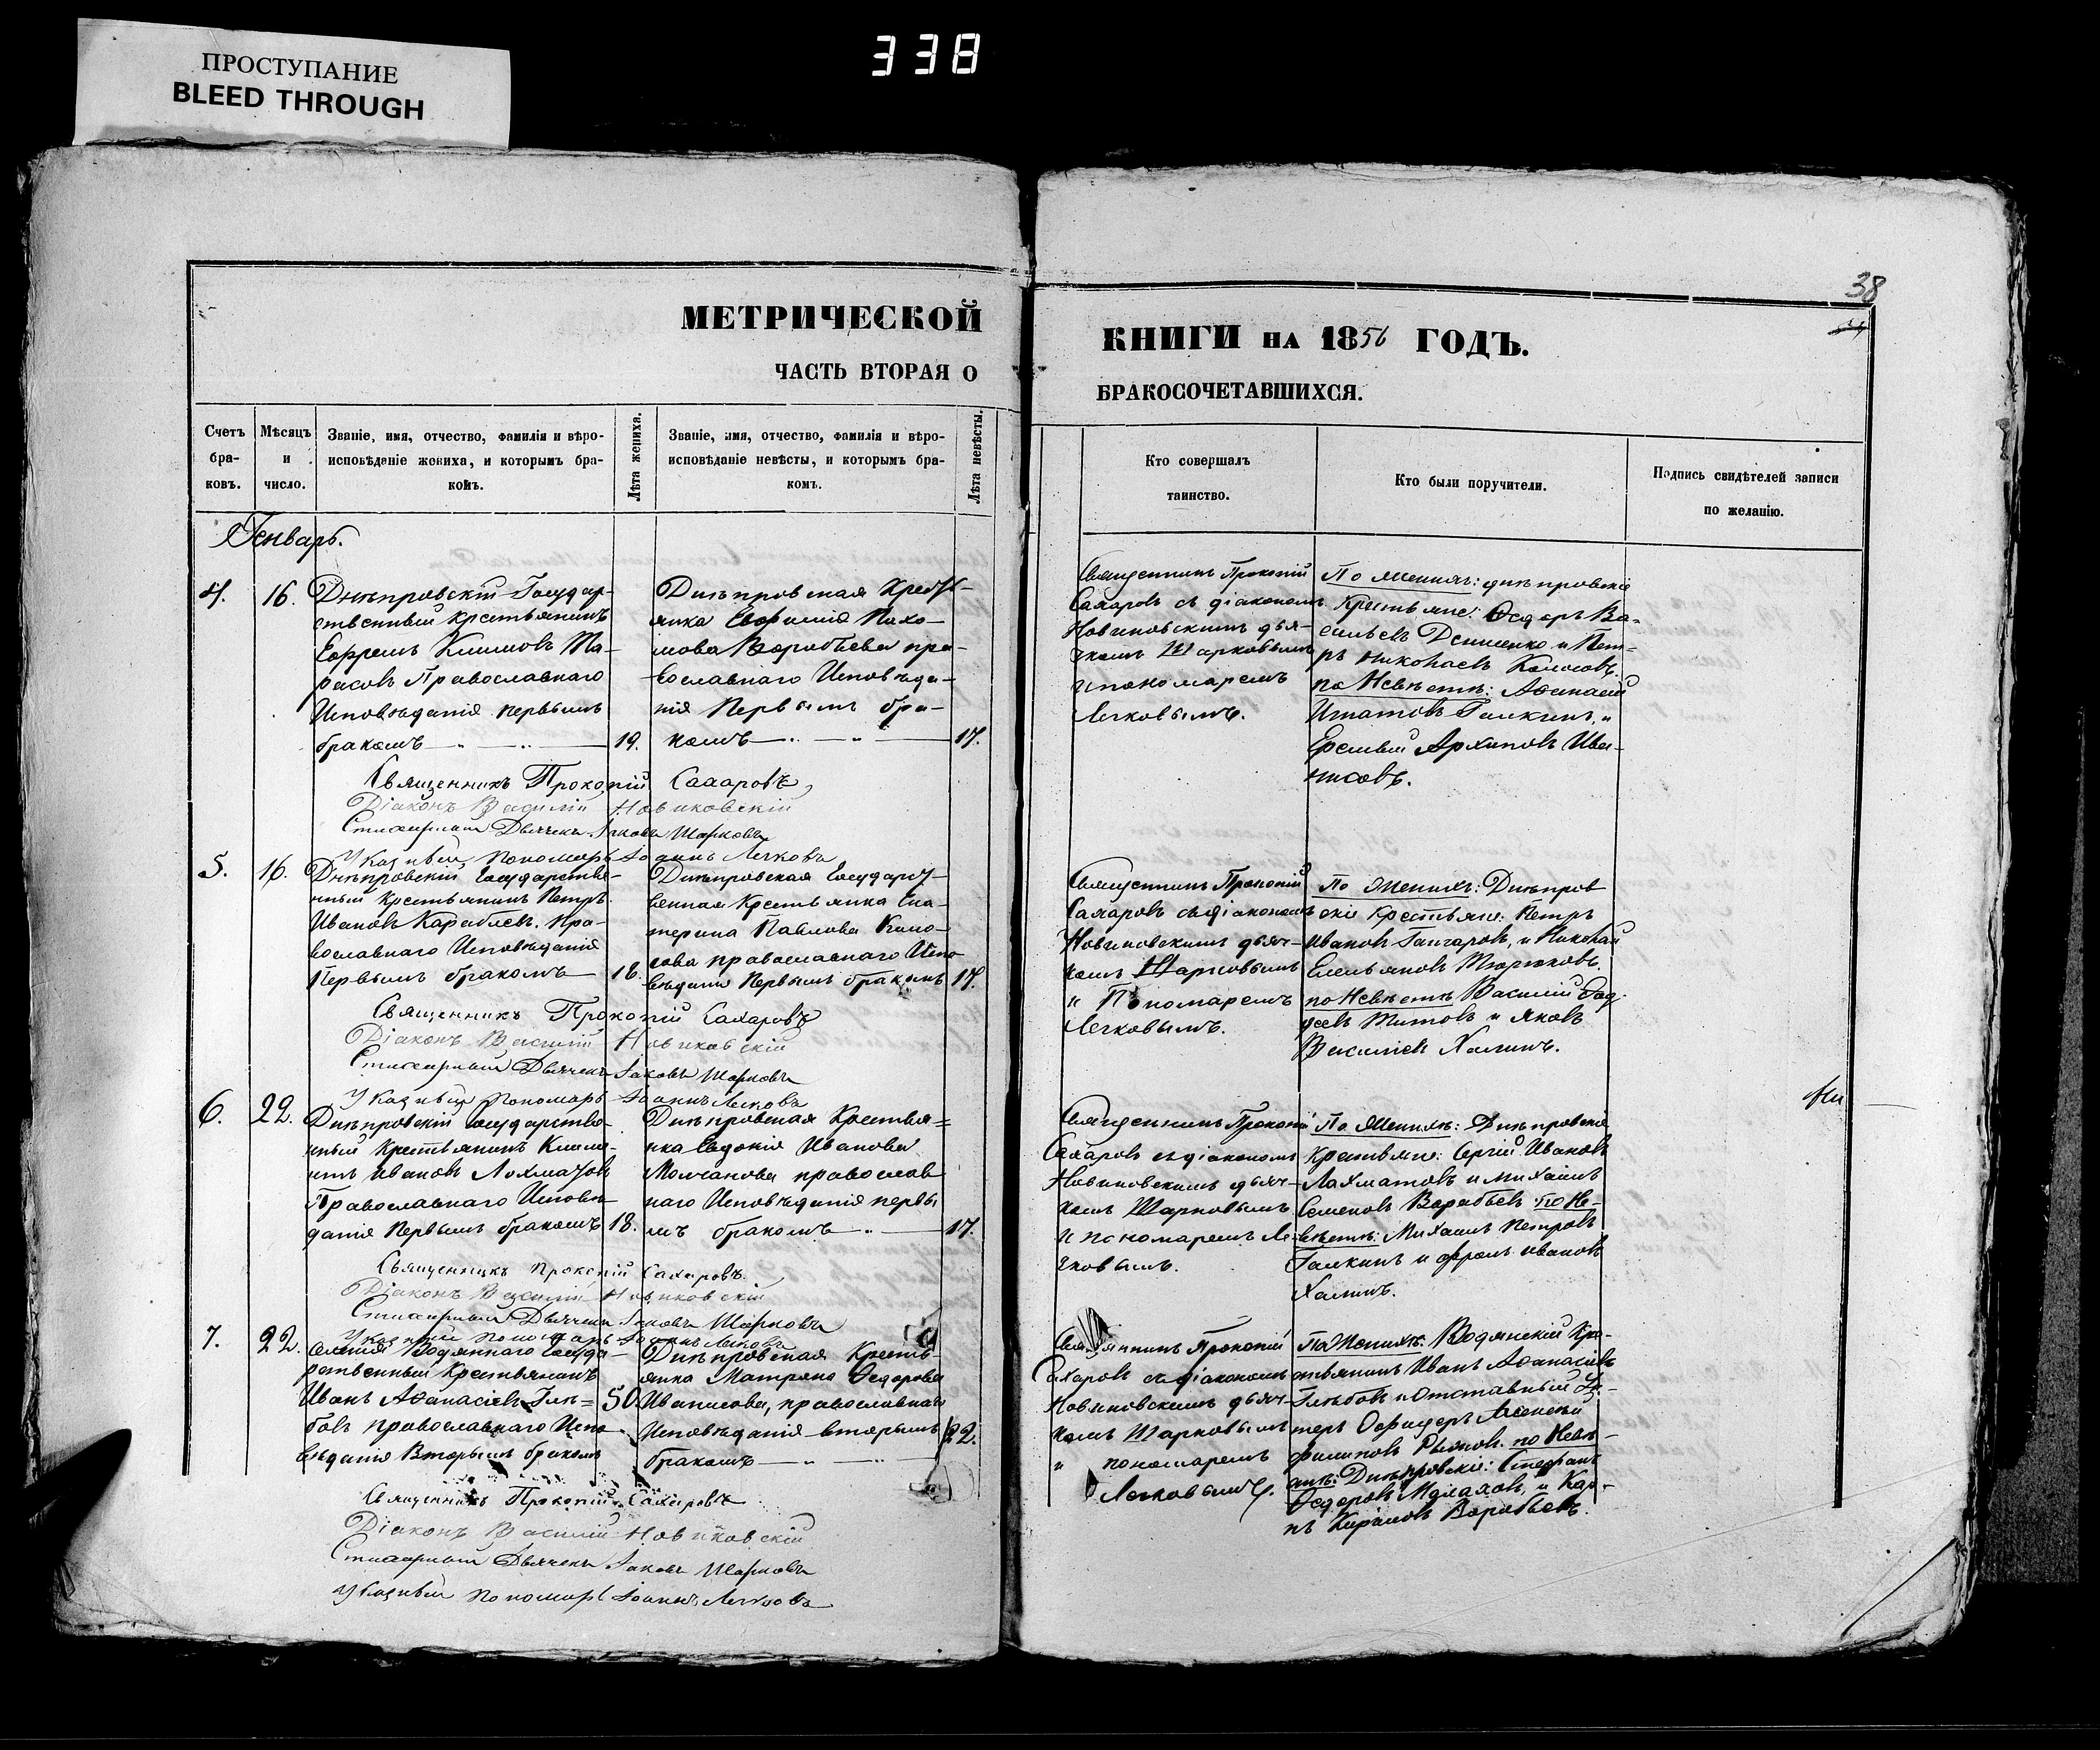 ПРОСТУПАНИЕ
BLEED THROUGH
338
38
МЕТРИЧЕСКОЙ
ЧАСТЬ ВТОРАЯ О
КНИГИ НА 1856 ГОДЪ.
БРАКОСОЧЕТАВШИХСЯ.
Счетъ
бра-
ковъ.
Мѣсяцъ
и
число.
Званіе, имя, отчество, фамилія и вѣро-
исповѣданіе жениха, и которымъ бра-
комъ.
Лѣта жениха.
Званіе, имя, отчество, фамилія и вѣро-
исповѣданіе невѣсты, и которымъ бра-
комъ.
Лѣта невѣсты.
Кто совершалъ
таинство.
Кто были поручители.
Подпись свидѣтелей записи
по желанію.
Генварь.
4.
16.
Днѣпровскій Государ-
ственный крестьянинъ
Ефремъ Климовъ Та-
расовъ Православнаго
Исповѣданія первымъ
бракомъ
19.
Днѣпровская Крест-
янка Евфимія Пахо-
мова Воробьева пра-
вославнаго Исповѣда-
нія Первымъ бра-
комъ
17.
Священникъ Прокопій
Сахаровъ съ діакономъ
Новиковскимъ дья-
чкомъ Шарковымъ
и пономаремъ
Легковымъ.
По Женихѣ: днѣпровскіе
Крестьяне: Ѳедоръ Ва-
сильевъ Денисенко и Пет-
ръ Николаевъ Колосовъ.
по Невѣстѣ: Аѳанасій
Игнатовъ Галкинъ, и
Еремѣй Архиповъ Ива-
нисовъ.
Священникъ Прокопій Сахаровъ
Діаконъ Василій Новиковскій
Стихарный Дьячекъ Іаковъ Шарковъ
Указный пономарь Іоаннъ Легковъ
5.
16.
Днѣпровскій Государстве-
нный Крестьянинъ Петръ
Ивановъ Караблевъ. Пра-
вославнаго Исповѣданія
Первымъ бракомъ
18.
Днѣпровская Государст-
венная Крестьянка Ека-
терина Павлова Коло-
сова православнаго Испо-
вѣданія Первымъ бракомъ
17.
Священникъ Прокопій
Сахаровъ съ діакономъ
Новиковскимъ дьяч-
комъ Шарковымъ
и Пономаремъ
Легковымъ.
По Женихѣ: Днѣпров
скіе Крестьяне: Петръ
Ивановъ Гангаровъ, и Николай
Емельяновъ Тюрюковъ.
по Невѣстѣ Василій Фад-
деевъ Титовъ и Яковъ
Василіевъ Халинъ.
Священникъ Прокопій Сахаровъ
Діаконъ Василій Новиковскій
Стихарный Дьячекъ Іаковъ Шарковъ
Указный Пономарь Іоаннъ Легковъ
6.
22.
Днѣпровскій Государстве-
нный Крестьянинъ Климе-
нтъ Ивановъ Лохматовъ
Православнаго Исповѣ-
данія Первымъ бракомъ
18.
Днѣпровская Крестья-
нка Евдокія Иванова
Молчанова православ
наго Исповѣданія первы
мъ бракомъ
17.
Священникъ Прокопій
Сахаровъ съ діакономъ
Новиковскимъ дьяч-
комъ Шарковымъ
и пономаремъ Ле-
гковымъ.
По Женихѣ: Днѣпровскіе
Крестьяне: Сергій Ивановъ
Лахматовъ и Михаилъ
Семеновъ Варабьевъ по Не-
вѣстѣ: Михаилъ Петровъ
Галкинъ и Фролъ Ивановъ
Халинъ.
Священникъ Прокопій Сахаровъ.
Діаконъ Василій Новиковскій
Стихарный Дьячекъ Іаковъ Шарковъ
Указный Пономарь Іоаннъ Легковъ
7.
22.
Селенія Водяннаго Госуда-
рственный Крестьянинъ
Иванъ Аѳанасіевъ Глѣ-
бовъ православнаго Испо-
вѣданія Вторымъ бракомъ
50.
Днѣпровская Кресть-
янка Матрона Ѳедорова
Иванисова, православнаго
Исповѣданія вторымъ
бракомъ
22.
Священникъ Прокопій
Сахаровъ съ діакономъ
Новиковскимъ дьяч-
комъ Шарковымъ
и пономаремъ
Легковымъ.
По Женихѣ: Водянскій Кре-
стьянинъ Иванъ Аѳанасіевъ
Глѣбовъ и Отставный Ун-
теръ Офицеръ Алексѣй
Филиповъ Рыжовъ. по Невѣ-
стѣ: Днѣпровскіе: Стефанъ
Ѳедоровъ Малаховъ, и Кар-
пъ Кириловъ Варабьевъ.
Священникъ Прокопій Сахаровъ
Діаконъ Василій Новиковскій
Стихарный Дьячекъ Іаковъ Шарковъ
Указный Пономарь Іоаннъ Легковъ